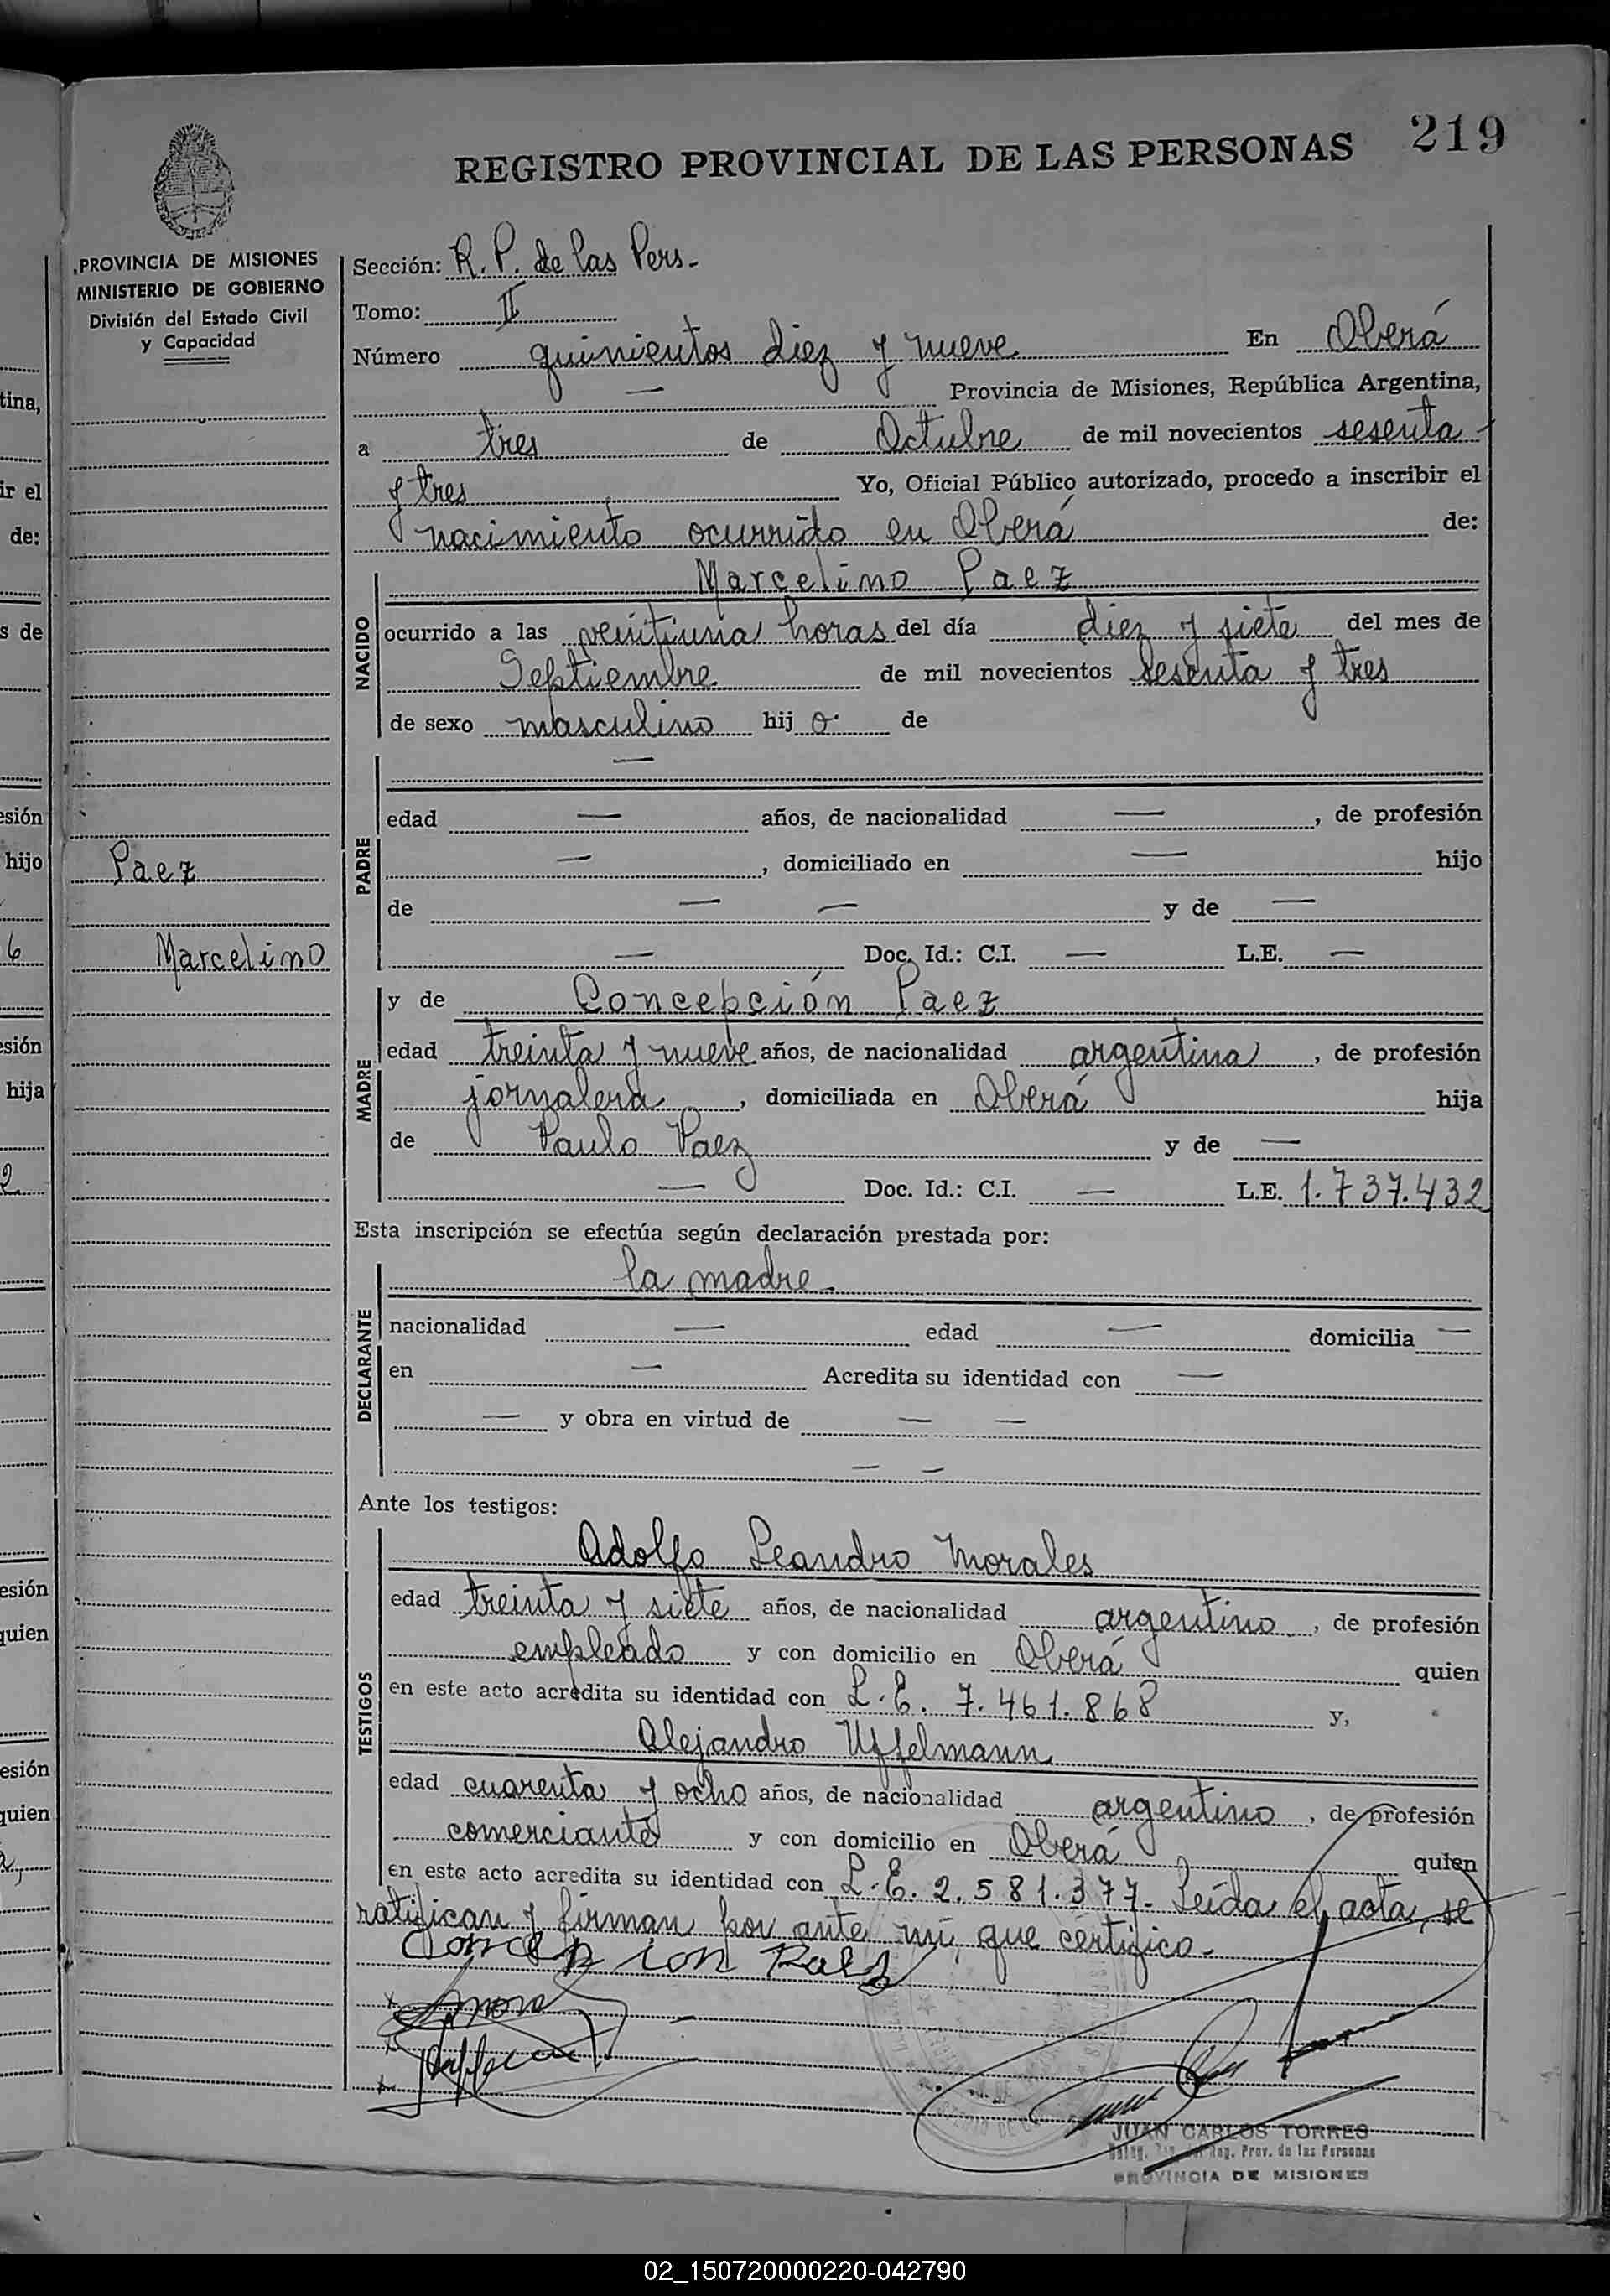 219
REGISTRO PROVINCIAL DE LAS PERSONAS
PROVINCIA DE MISIONES
MINISTERIO DE GOBIERNO
División del Estado Civil
y Capacidad
Paez
Marcelino
Sección: R. P. de las Pers.-
Tomo: II
Número quinientos diez y nueve En Oberá
— Provincia de Misiones, República Argentina,
a tres de Octubre de mil novecientos sesenta
y tres Yo, Oficial Público autorizado, procedo a inscribir el
nacimiento ocurrido en Oberá de:
NACIDO
Marcelino Paez
ocurrido a las veintiuna horas del día diez y siete del mes de
Septiembre de mil novecientos sesenta y tres
de sexo masculino hijo de
PADRE
—
edad — años, de nacionalidad —, de profesión
—, domiciliado en — hijo
de — — y de —
— Doc. Id.: C.I. — L.E. —
MADRE
y de Concepción Paez
edad treinta y nueve años, de nacionalidad argentina, de profesión
jornalera, domiciliada en Oberá hija
de Paulo Paez y de —
— Doc. Id.: C.I. — L.E. 1.737.432
Esta inscripción se efectúa según declaración prestada por:
DECLARANTE
la madre.
nacionalidad — edad — domicilia —
en — Acredita su identidad con —
— y obra en virtud de — —
— —
Ante los testigos:
TESTIGOS
Adolfo Leandro Morales
edad treinta y siete años, de nacionalidad argentino, de profesión
empleado y con domicilio en Oberá quien
en este acto acredita su identidad con L.E. 7.461.868 y,
Alejandro Uffelmann
edad cuarenta y ocho años, de nacionalidad argentino, de profesión
comerciante y con domicilio en Oberá quien
en este acto acredita su identidad con L.E. 2.581.377.- Leída el acta, se
ratifican y firman por ante mí, que certifico.-
Concepcion Paez
JUAN CARLOS TORRES
Reg. Prov. de las Personas
PROVINCIA DE MISIONES
tina,
ir el
de:
s de
esión
hijo
6
esión
hija
2
esión
quien
esión
quien
02_150720000220-042790